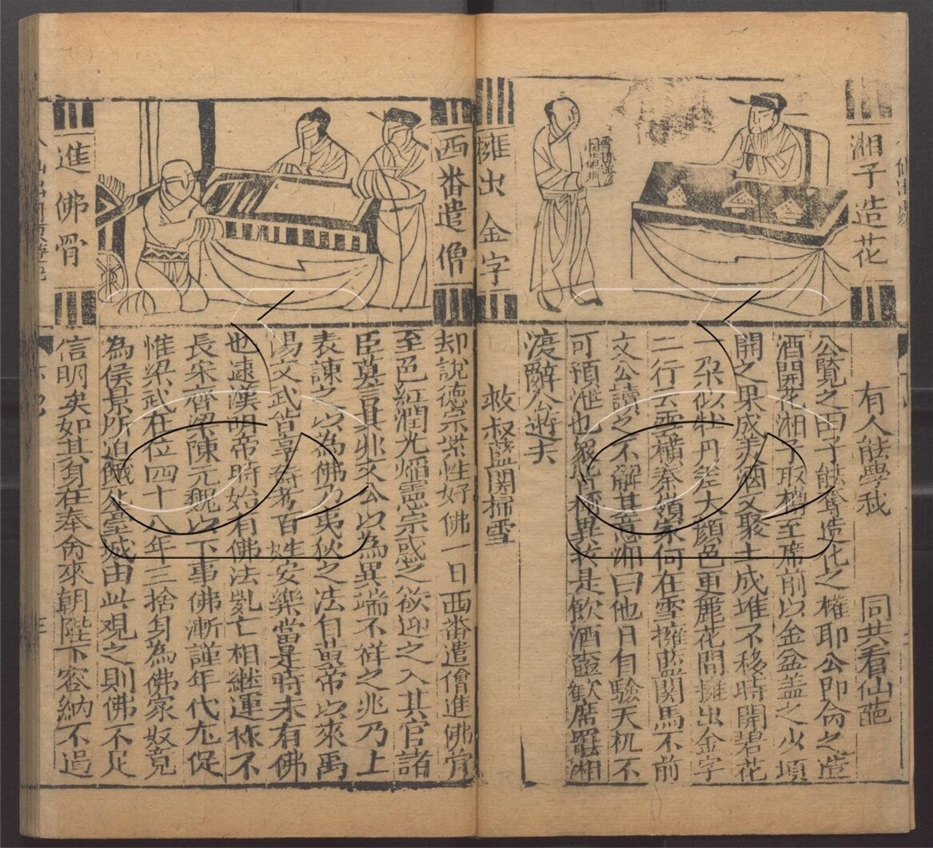 湘子造花
擁出金字
有人能學我 同共看仙葩
公覽之曰子能奪造化之權耶公即命之造
酒開花湘子取樽至席前以金盆蓋之少頃
開之果成美酒又聚土成堆不移時開碧花
一朵似牡丹差大顏色更麗花間擁出金字
二行云雲橫秦嶺家何在雪擁藍関馬不前
文公讀之不解其意湘曰他日自驗天机不
可預洩也眾皆稱異於是飲酒盡歡席罷湘
渡辭公遊去
救叔藍関掃雪
西畨遣僧
進佛骨
却說德宗崇性好佛一日西畨遣僧進佛骨
至色紅潤光煙憲宗惑之欲迎之入其官諸
臣莫言其非文公以為異端不祥之兆乃上
表諫之以為佛乃夷狄之法自黃帝以來禹
湯文武皆享壽考百姓安樂當是時未有佛
也逮漢明帝時始有佛法亂亡相継運祚不
長宋齊梁陳元魏以下事佛漸謹年代尤促
惟梁武在位四十八年三捨身為佛家奴竟
為侯景所迫餓死臺城由此观之則佛不足
信明矣如其身在奉命來朝陛下容納不過